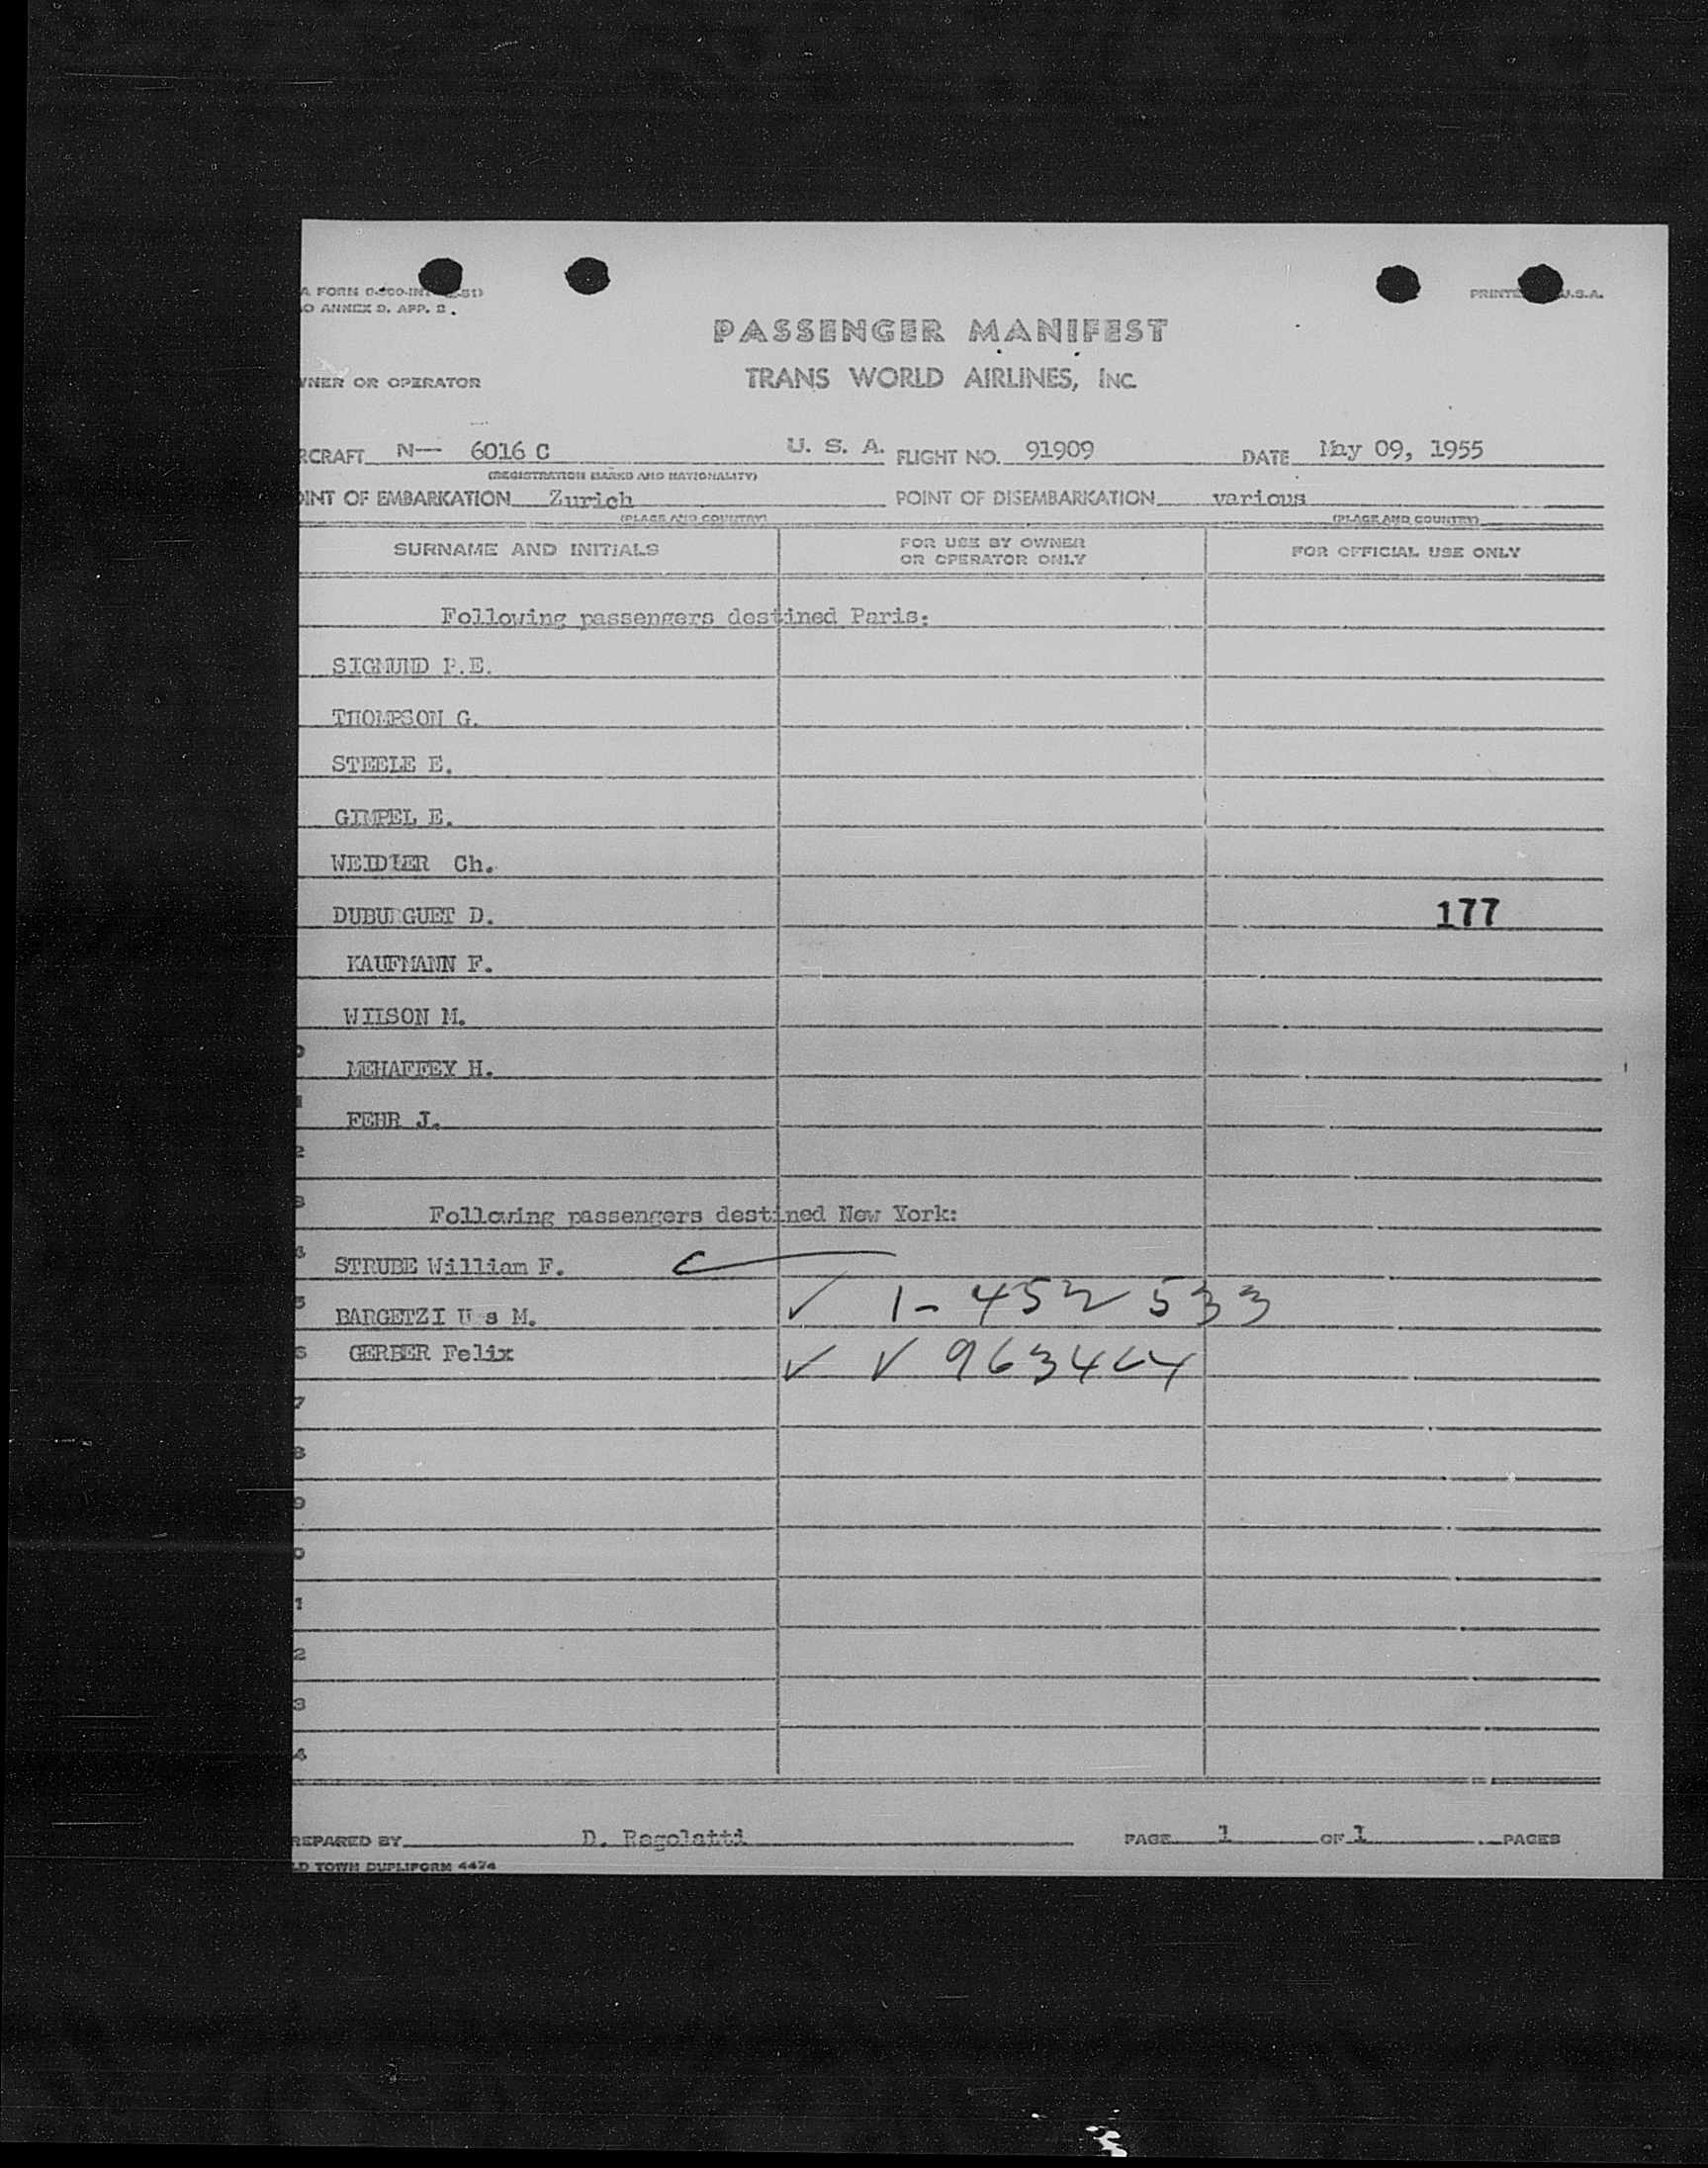 A FORM
O ANNEX D. APP. 2.
PRINTE U.S.A.
PASSENGER MANIFEST
TRANS WORLD AIRLINES, INC.
WNER OR OPERATOR
RCRAFT N— 6016 C U. S. A. FLIGHT NO. 91909 DATE May 09, 1955
(REGISTRATION MARKS AND NATIONALITY)
OINT OF EMBARKATION Zurich POINT OF DISEMBARKATION various
(PLACE AND COUNTRY) (PLACE AND COUNTRY)
SURNAME AND INITIALS FOR USE BY OWNER OR OPERATOR ONLY FOR OFFICIAL USE ONLY
Following passengers destined Paris:
SIGMUND P.E.
THOMPSON G.
STEELE E.
GIMPEL E.
WEIDLER Ch.
DUBU GUET D. 177
KAUFMANN F.
WILSON M.
0 MEHAFFEY H.
1 FEHR J.
2
3 Following passengers destined New York:
4 STRUBE William F.
5 BARGETZI U s M. ✓ 1-452 533
6 GERBER Felix ✓ ✓ 9634
7
8
9
0
1
2
3
4
REPARED BY D. Regolatti PAGE 1 OF 1 PAGES
LD TOWN DUPLIFORM 4474